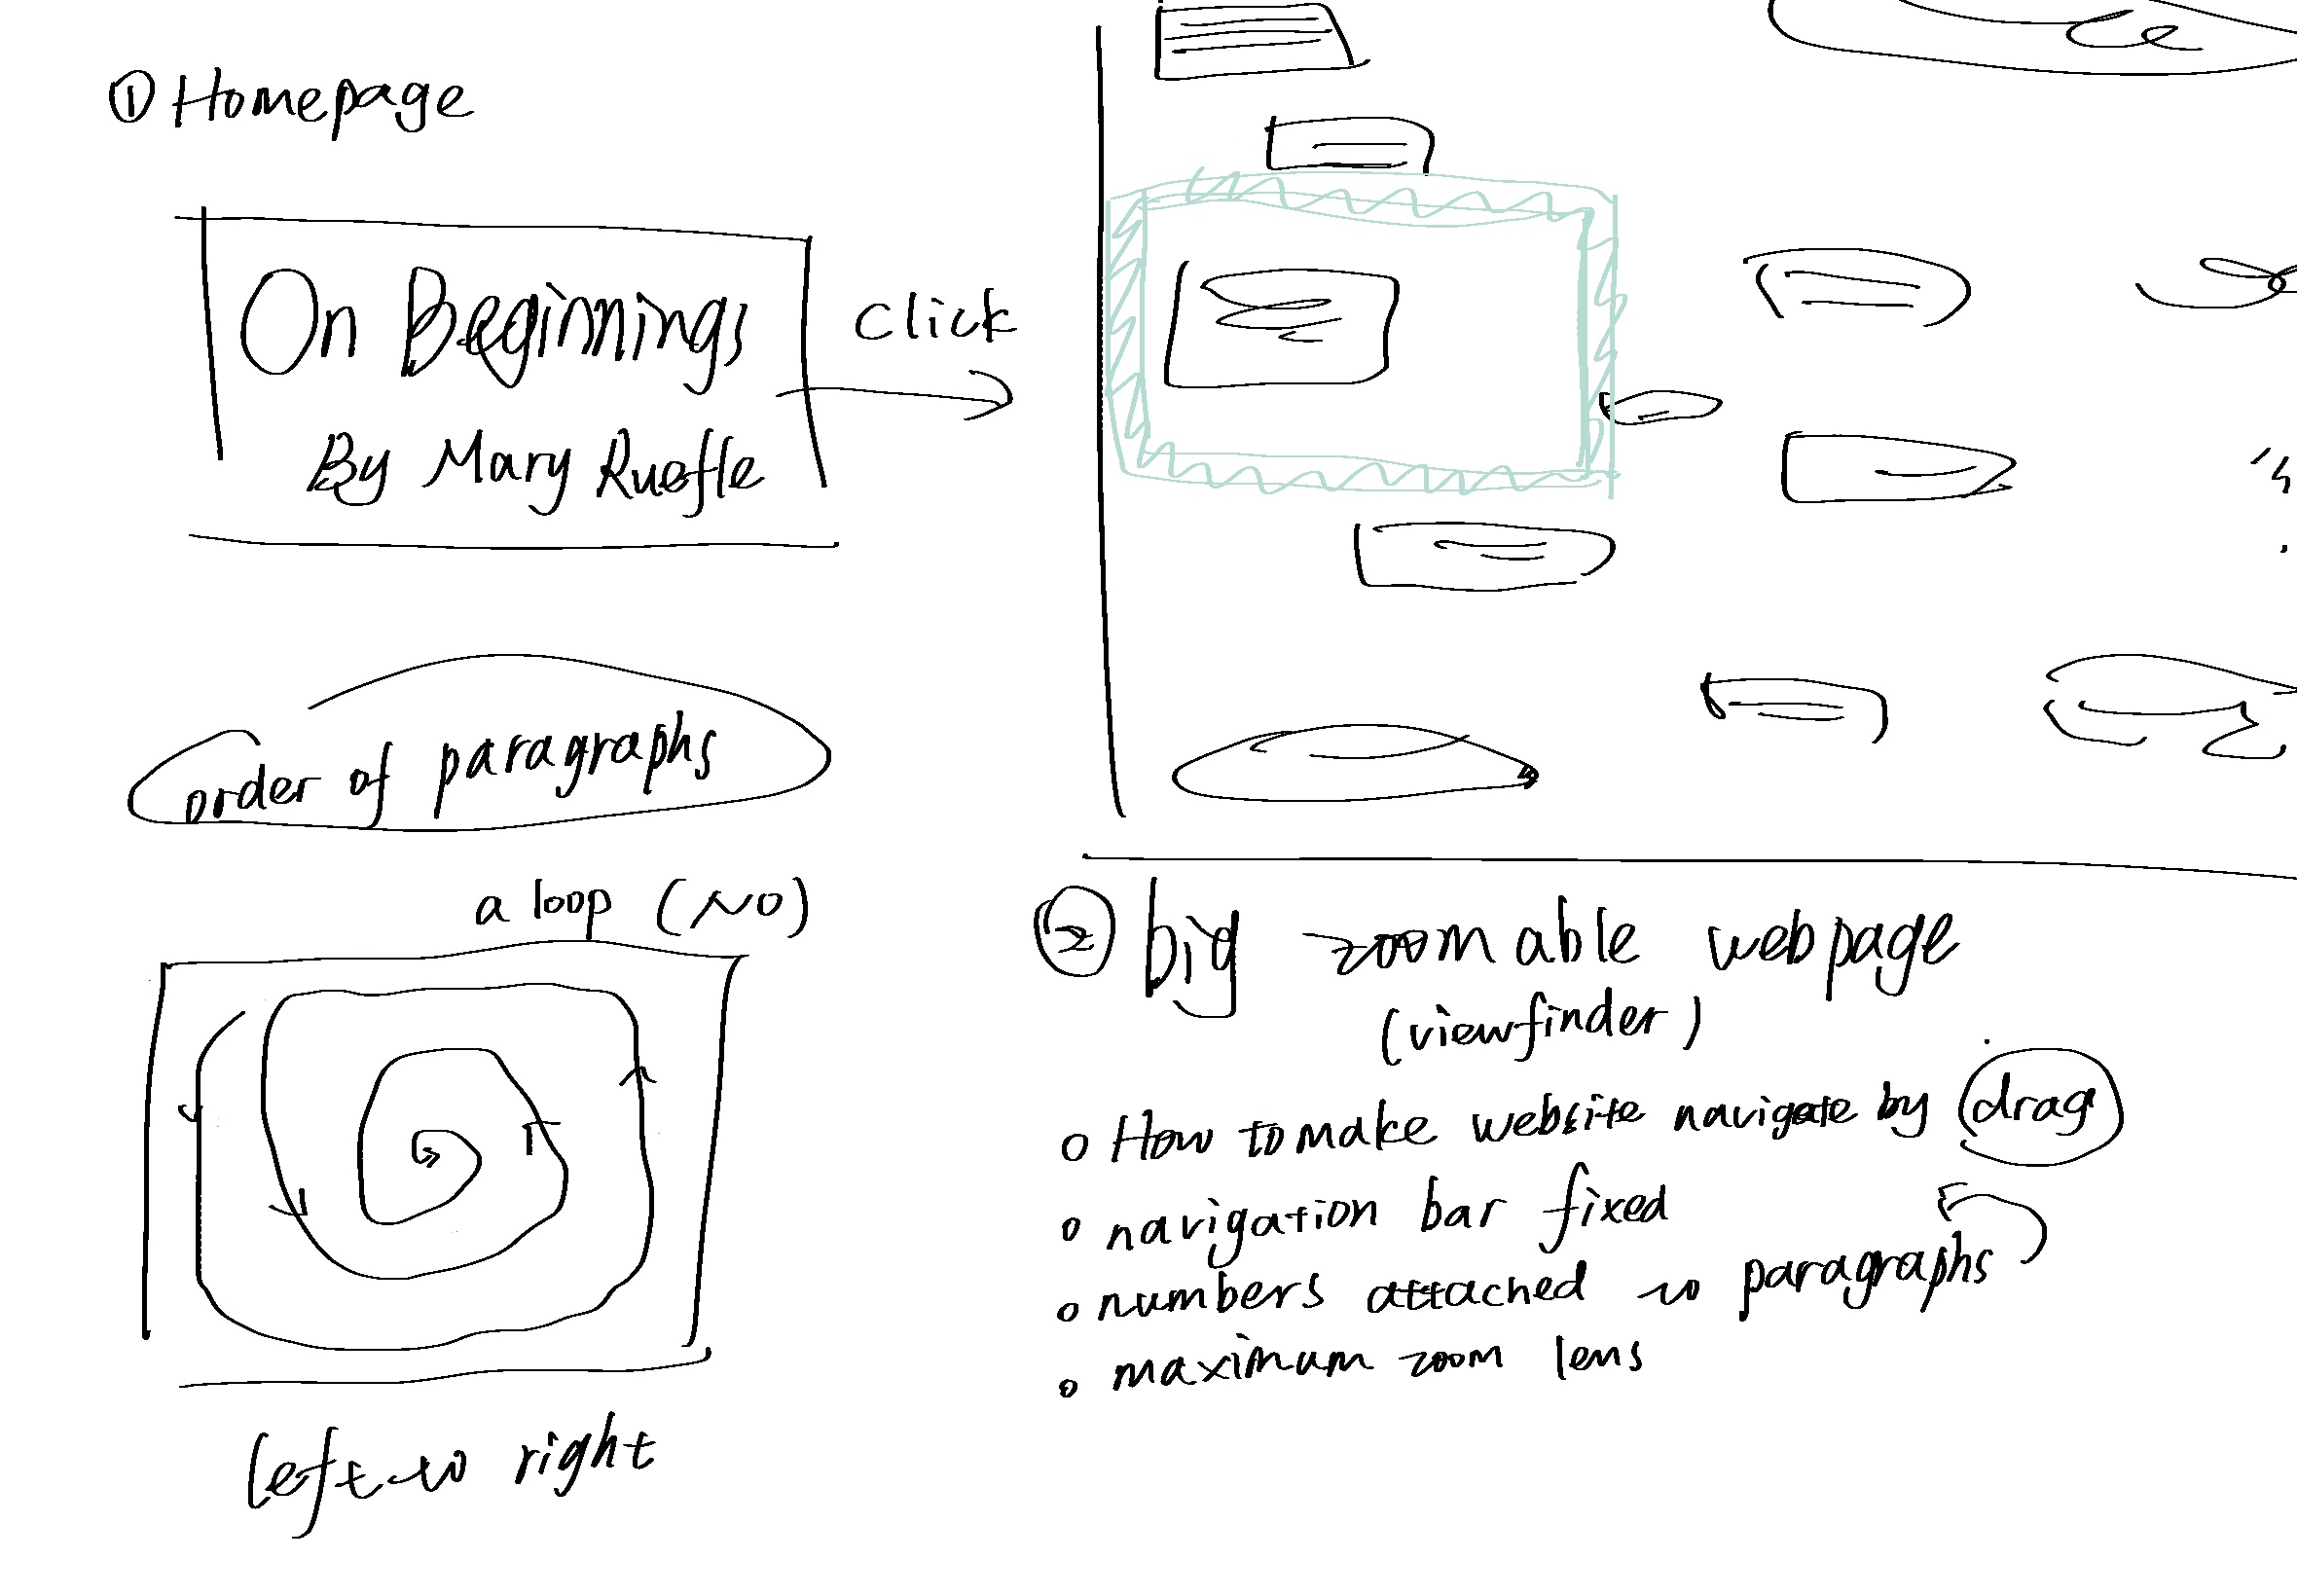 ① Homepage
On Beginnings
By Mary Ruefle
click
order of paragraphs
a loop (NO)
left to right
② big zoomable webpage
(viewfinder)
o How to make website navigate by drag
o navigation bar fixed
o numbers attached to paragraphs
o maximum zoom lens